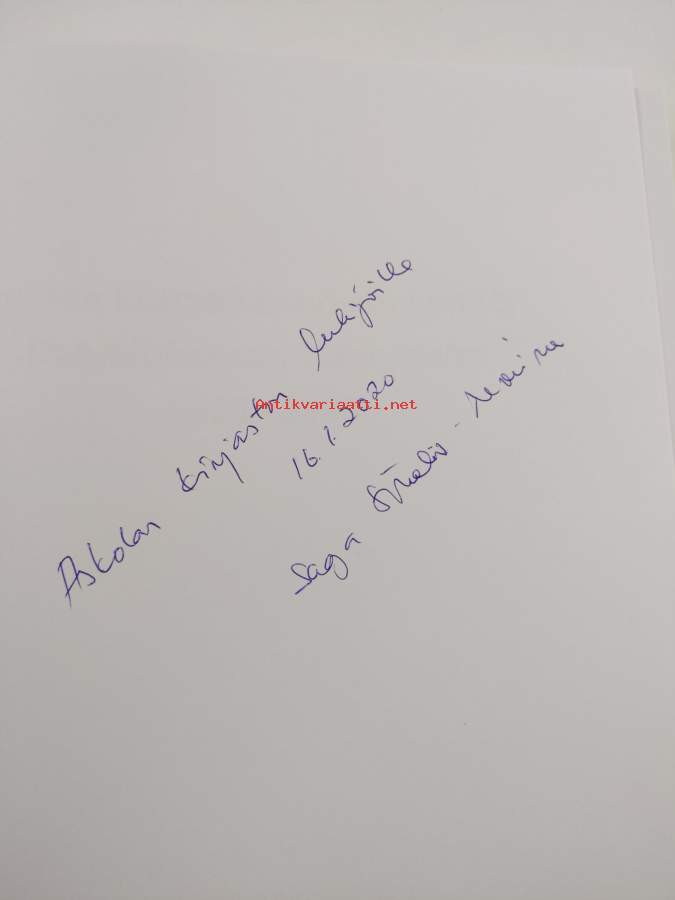 Askolan kirjaston lukijoille
16.1.2020
Saga
Antikvariaatti.net